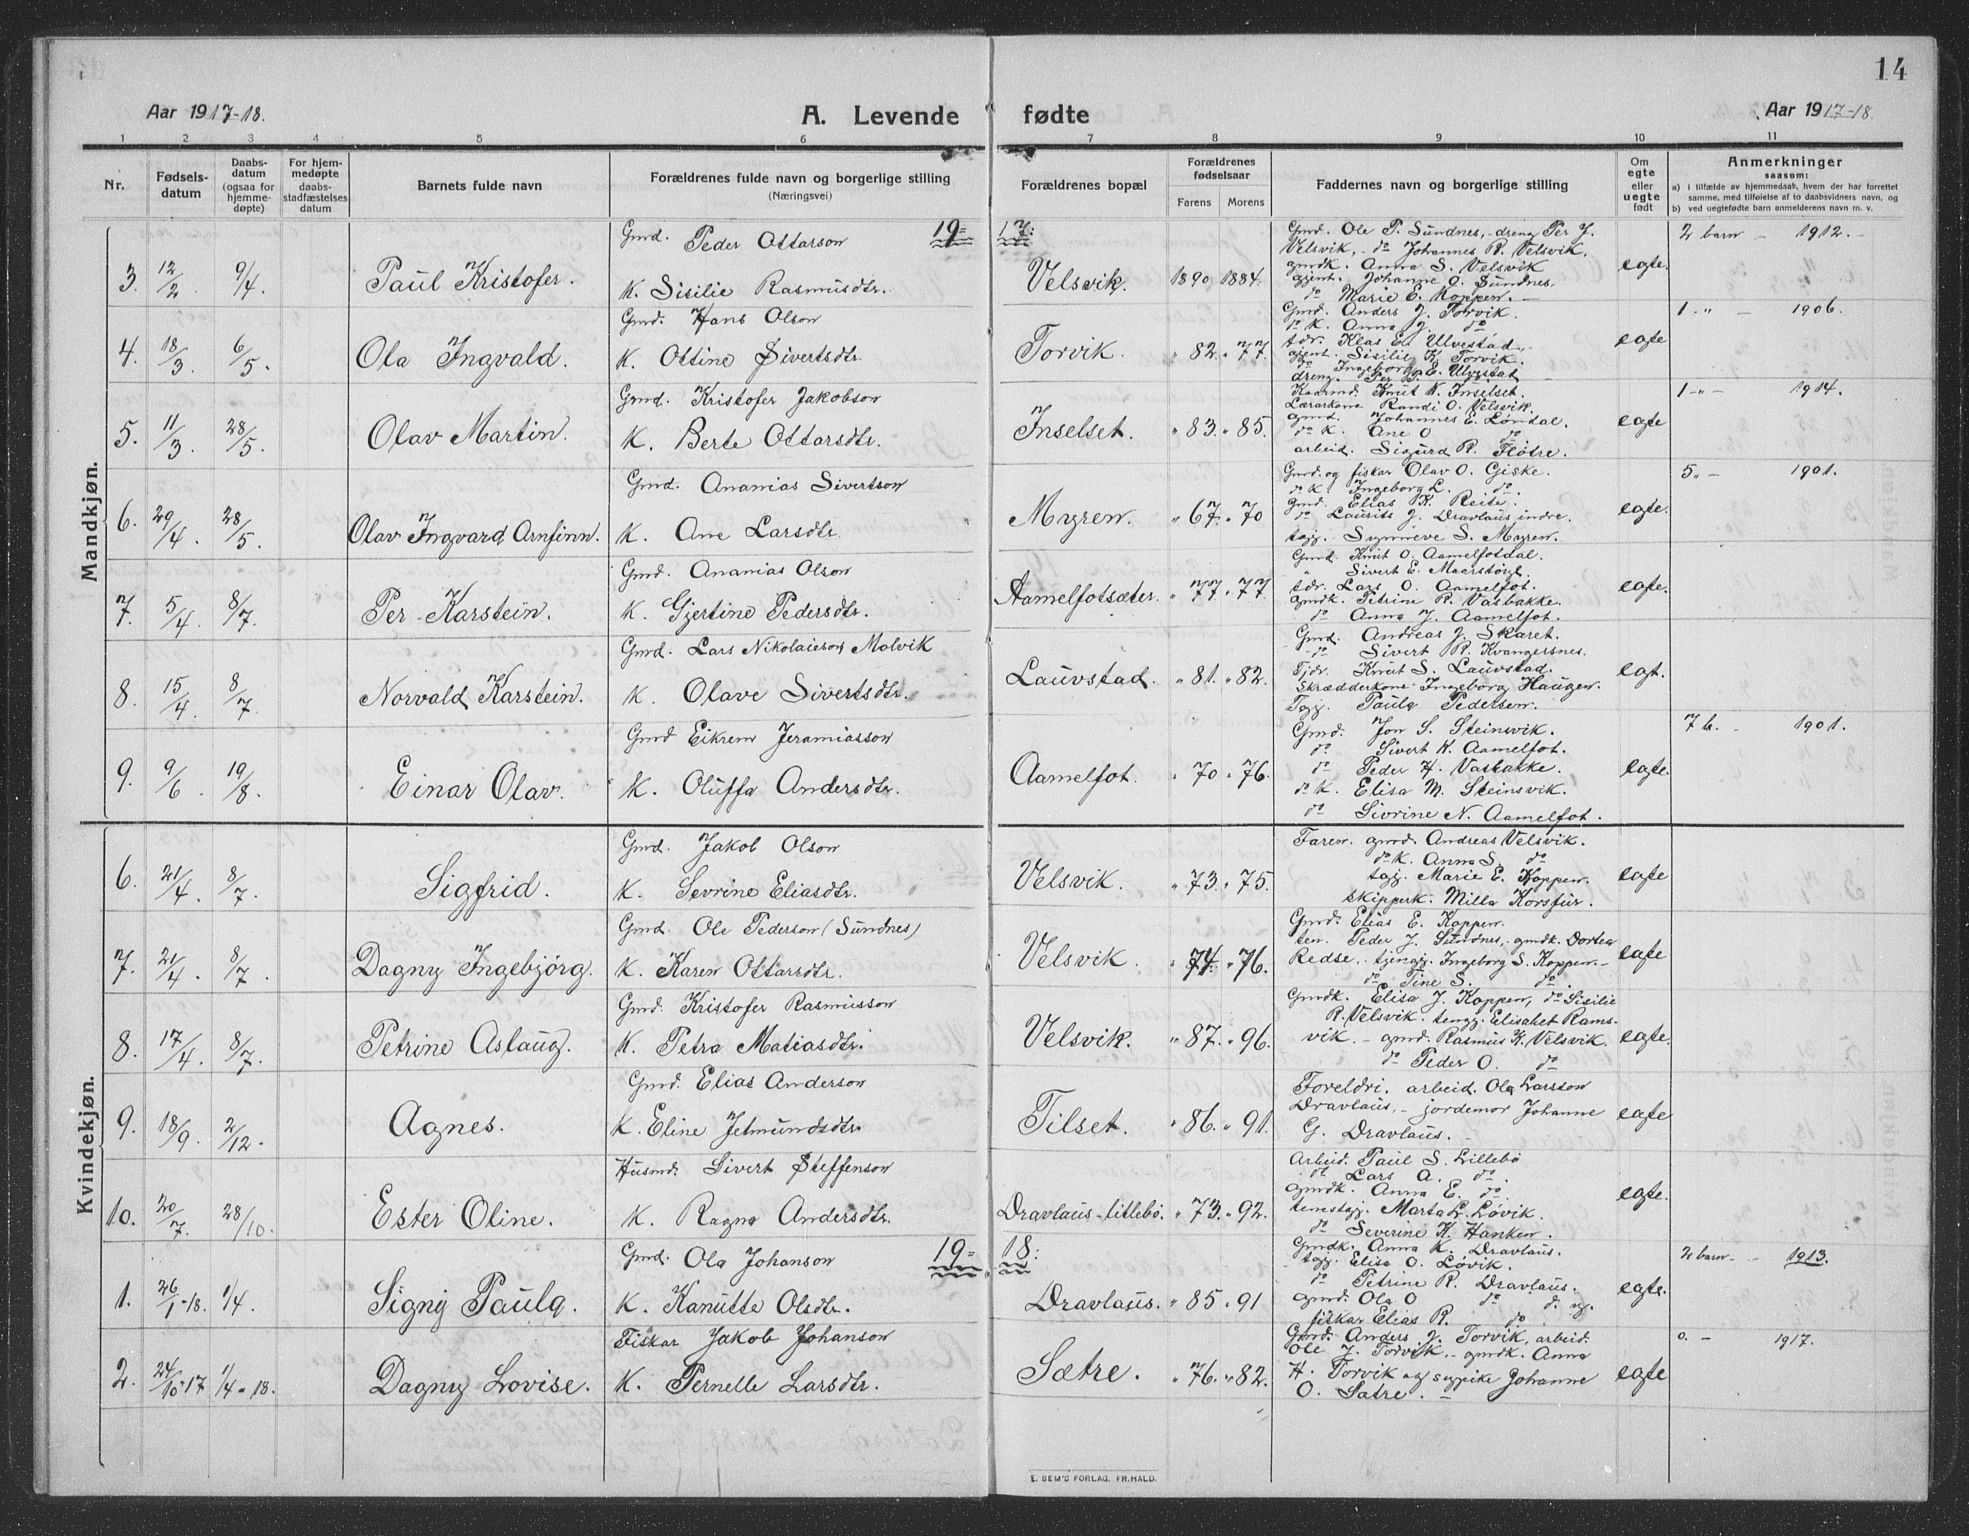 14
Aar 1917-18.
A. Levende fødte
Aar 1917-18
1 2 3 4 5 6 7 8 9 10 11
Nr.
Fødsels-
datum
Daabs-
datum
(ogsaa for
hjemme-
døpte)
For hjem-
medøpte
daabs-
stadfæstelses
datum
Barnets fulde navn
Forældrenes fulde navn og borgerlige stilling
(Næringsvei)
Forældrenes bopæl
Forældrenes
fødselsaar
Farens Morens
Faddernes navn og borgerlige stilling
Om
egte
eller
uegte
født
Anmerkninger
saasom:
a) i tilfælde av hjemmedaab, hvem der har forrettet
samme, med tilføielse af to daabsvidners navn, og
b) ved uegtefødte barn anmelderens navn m. v.
Mandkjøn.
19=17:
3. 12/2 9/4. Paul Kristofer.
Gmd. Peder Ottarson
K. Sisilie Rasmusdtr.
Velsvik. 1890 1884.
Gmd. Ole P. Sundnes, dreng Per J.
Velsvik, do Johannes R. Velsvik,
gmdk. Anna S. Velsvik
gjent. Johanne O. Sundnes.
do Marie E. Koppen.
egte. 2 barn - 1912.
4. 18/3 6/5. Ola Ingvald.
Gmd. Hans Olson
K. Ottine Sivertsdtr.
Torvik. " 82. " 77.
Gmd. Anders J. Torvik.
do K. Anna J. do
tdr. Klas E. Ulvestad,
gjent. Sisilie K. Torvik.
do Ingeborg E. Ulvestad
dreng. Per
egte 1 " - 1906.
5. 11/3 28/5. Olav Martin.
Gmd. Kristofer Jakobson
K. Berte Ottarsdtr.
Inselset. " 83. " 85.
Kaarmd. Knut K. Inselset.
Lærarkone Randi O. Velsvik.
gmd. Johannes E. Løndal.
do K. Ane O do
arbeid. Sigurd R. Fløtre.
egte 1 - " - 1914.
6. 20/4. 28/5. Olav Ingvard Arnfinn.
Gmd. Ananias Sivertson
K. Ane Larsdtr.
Myren. " 67. " 70
Gmd. og fiskar Olav O. Giske.
do K. Ingeborg L. do.
gmd. Elias K. Reite.
do Laurits J. Dravlaus indre.
tgj. Synneve S. Myren.
egte. 5 " - 1901.
7. 5/4. 8/7. Per Karstein.
Gmd. Ananias Olson
K. Gjertine Pedersdtr.
Aamelfotsæter. " 77. " 77.
Gmd. Knut O. Aamelfotdal.
" Sivert E. Maarstøyl.
tdr. Lars O. Aamelfot.
gmdk. Petrine R. Vasbakke.
do Anna J. Aamelfot.
egte.
8. 15/4. 8/7. Norvald Karstein.
Gmd. Lars Nikolaieson Molvik
K. Olave Sivertsdtr.
Lauvstad. " 81. " 82.
Gmd. Andreas J. Skaret.
do Sivert R. Kvangersnes.
Tjdr. Knut S. Lauvstad.
Skrædderkone Ingeborg Haugen.
Tgj. Paula Pedersen.
egt.
9. 9/6. 19/8. Einar Olav.
Gmd Eikrem Jeramiasson
K. Oluffa Andersdtr.
Aamelfot. " 70 " 76.
Gmd. Jon S. Steinsvik.
do Sivert K. Aamelfot.
do Peder H. Vasbakke.
do K. Elisa M. Steinsvik.
do Sivrine N. Aamelfot.
egte. 7 b. - 1901.
Kvindekjøn.
6. 21/4. 8/7. Sigfrid.
Gmd. Jakob Olson
K. Sevrine Eliasdtr.
Velsvik. " 73. " 75.
Faren. gmd. Andreas Velsvik.
do K. Anna S. do
tgj. Marie E. Koppen.
skipperk. Milla Korsfur.
egte
7. 21/4. 8/7. Dagny Ingebjörg.
Gmd. Ole Pederson (Sundnes)
K. Karen Ottarsdtr.
Velsvik. " 74. " 76.
Gmd. Elias E. Koppen.
ten. Peder J. Sundnes, gmdk. Dortea
Redse, tjengj. Ingeborg S. Koppen.
do Tine S. do.
egte
8. 17/4. 8/7. Petrine Aslaug.
Gmd. Kristofer Rasmusson
K. Petra Matiasdtr.
Velsvik. " 87. " 96.
Gmdk. Elisa J. Koppen, do Sisilie
R. Velsvik. tengj. Elisabet Rams-
vik. - gmd. Rasmus K. Velsvik.
do Peder O. do
egte.
9. 18/9. 2/12. Agnes.
Gmd. Elias Anderson
K. Eline Jetmundsdtr.
Tilset. " 86. " 91.
Foreldri, arbeid. Ola Larsson
Dravlaus, - jordemor Johanne
G. Dravlaus.
egte
10. 20/7. 28/10. Ester Oline.
Husmd. Sivert Steffenson
K. Ragna Andersdtr.
Dravlaus-litlebø. " 73. " 92.
Arbeid. Paul S. Lillebø
do Lars A. do.
gmdk. Anna E. do.
tenestgj. Marta L. Løvik.
do Severine K. Hanken.
egte.
19=18:
1. 26/1-18. 1/4. Signy Paula.
Gmd. Ola Johanson
K. Kanutte Olsdtr.
Dravlaus. " 85. " 91
Gmdk. Anna K. Dravlaus.
tgj. Elisa O. Løvik.
do Petrine R. Dravlaus.
gmd. Ola O do d. y.
fiskar Elias R. do.
egte. 2 barn - 1913.
2. 24/10-17 1/4-18. Dagny Lovise.
Fiskar Jakob Johanson
K. Pernelle Larsdtr.
Sætre. " 76. " 82.
Gmd. Anders J. Torvik, arbeid.
Ole J. Torvik, - gmdk. Anna
H. Torvik og sypike Johanne
O. Sætre.
egte 0. - 1917.
E. SEM'S FORLAG, FR.HALD.